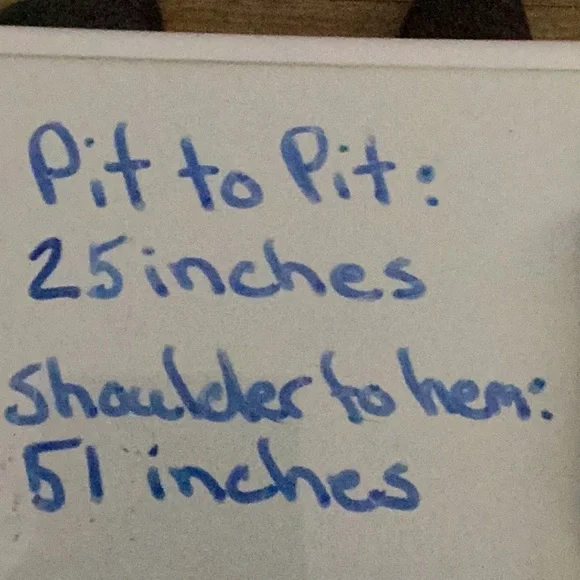 Pit to Pit:
25 inches
Shoulder to hem:
51 inches